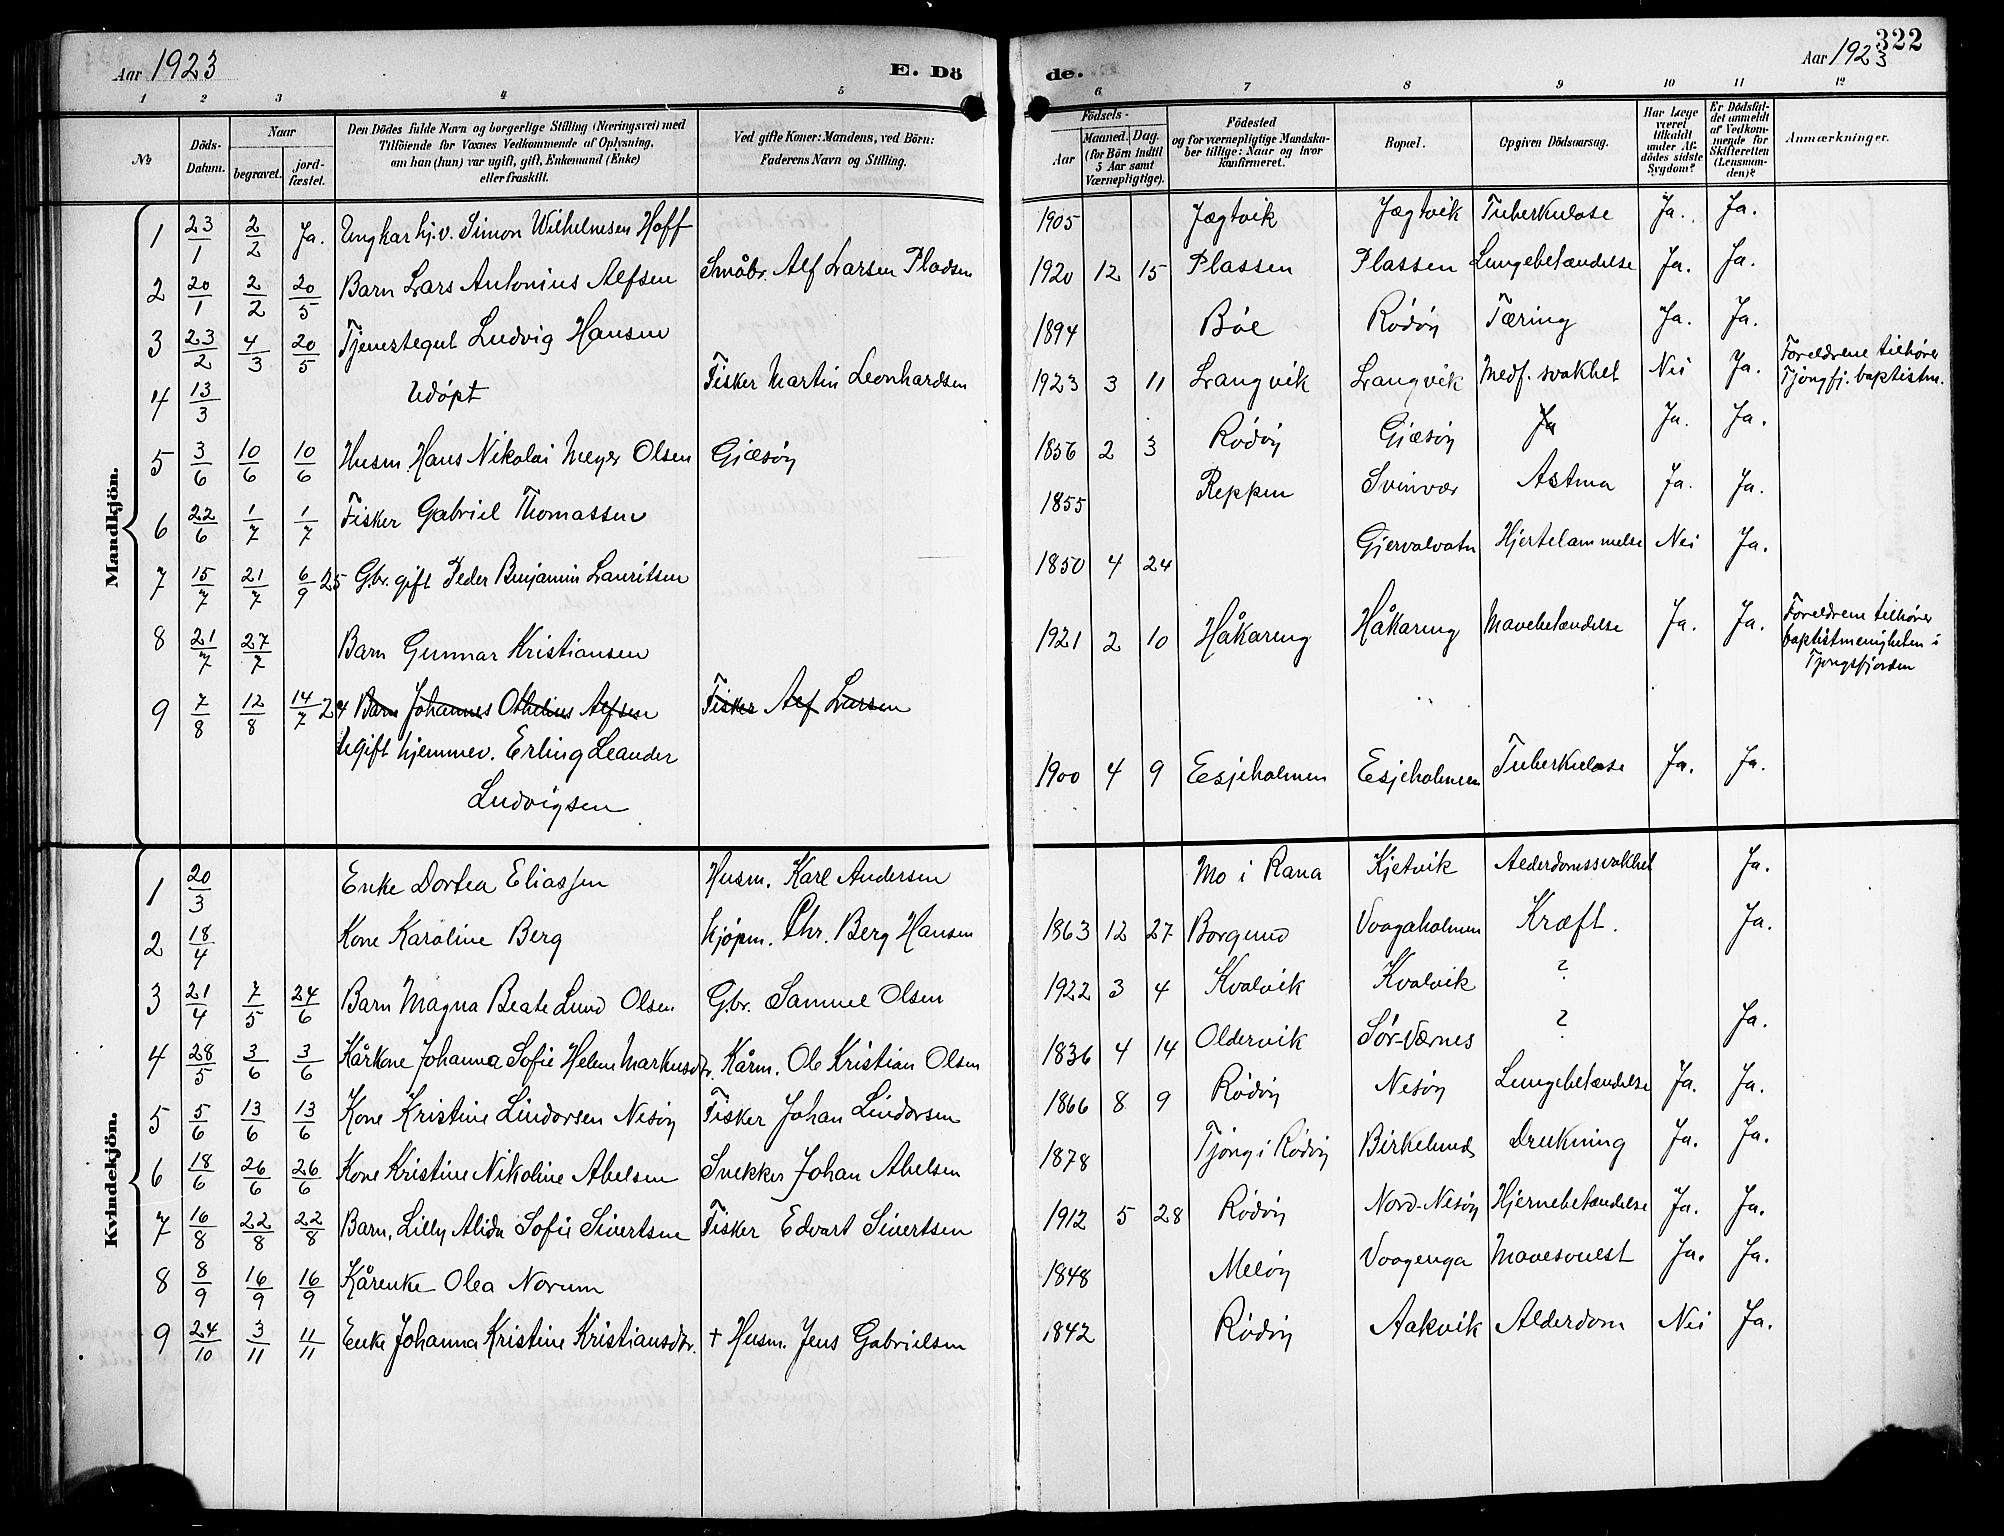 322
Aar 1923 E. Dö de. Aar 1923
1 2 3 4 5 6 7 8 9 10 11 12
№
Döds-Datum.
Naar
begravet.
jord-fæstet.
Den Dödes fulde Navn og borgerlige Stilling (Næringsvei) med
Tilföiende for Voxnes Vedkommende af Oplysning,
om han (hun) var ugift, gift, Enkemand (Enke)
eller fraskilt.
Ved gifte Koner: Mandens, ved Börn:
Faderens Navn og Stilling.
Födsels-
Aar
Maaned. Dag.
(for Börn indtil
5 Aar samt
Værnepligtige).
Födested
og for værnepligtige Mandska-
ber tillige: Naar og hvor
konfirmeret.
Bopæl.
Opgiven Dödsaarsag.
Har Læge
været
tilkaldt
under Af-
dödes sidste
Sygdom?
Er Dödsfal-
det anmeldt
af Vedkom-
mende for
Skifteretten
(Lensman-
den)?
Anmærkninger.
Mandkjön.
1 23/1 2/2 Ja. Ungkar hj.v. Simon Wilhelmsen Hoff 1905 Jægtvik Jægtvik Tuberkulose Ja. Ja.
2 20/1 2/2 20/5 Barn Lars Antonius Alfsen Småbr. Alf Larsen Pladsen 1920 12 15 Plassen Plassen Lungebetændelse Ja. Ja.
3 23/2 4/3 20/5 Tjenestegut Ludvig Hansen 1894 Böe Rödöy Tæring Ja. Ja.
4 13/3 Udöpt Fisker Martin Leonhardsen 1923 3 11 Langvik Langvik Medf. svakhet Nei Ja. Foreldrene tilhører
Tjongfj. baptistm.
5 3/6 10/6 10/6 Husm. Hans Nikolai Meyer Olsen Gjæsöy 1856 2 3 Rödöy Gjæsöy Ja Ja. Ja.
6 22/6 1/7 1/7 Fisker Gabriel Thomassen 1855 Reppen Svinvær Astma Ja. Ja.
7 15/7 21/7 6/9 25 Gbr. gift Peder Benjamin Lauritsen 1850 4 24 Gjervalvatn Hjertelammelse Nei Ja.
8 21/7 27/7 Barn Gunnar Kristiansen 1921 2 10 Håkareng Håkareng Mavebetændelse Ja. Ja. Foreldrene tilhører
baptistmenigheten i
Tjongsfjorden
9 7/8 12/8 14/7 24 Barn Johannes Othelius Alfsen Fisker Alf Larsen
Ugift hjemmev. Erling Leander
Ludvigsen 1900 4 9 Esjeholmen Esjeholmen Tuberkulose Ja. Ja.
Kvindekjön.
1 20/3 Enke Dortea Eliassen Husm. Karl Andersen Mo i Rana Kjetvik Alderdomssvakhet Ja.
2 18/4 Kone Karoline Berg Kjöpm. Chr. Berg Hansen 1863 12 27 Borgund Vaagaholmen Kræft. Ja.
3 21/4 7/5 24/6 Barn Magna Beate Lund Olsen Gbr. Samuel Olsen 1922 3 4 Kvalvik Kvalvik ?
4 28/5 3/6 3/6 Kårkone Johanna Sofie Helene Markusdtr. Kårm. Ole Kristian Olsen 1836 4 14 Oldervik Sör-Værnes ? Ja.
5 5/6 13/6 13/6 Kone Kristine Lindorsen Nesöy Fisker Johan Lindorsen 1866 8 9 Rödöy Nesöy Lungebetændelse Ja. Ja.
6 18/6 26/6 26/6 Kone Kristine Nikoline Abelsen Snekker Johan Abelsen 1878 Tjong i Rödöy Birkelund Drukning Ja. Ja.
7 16/8 22/8 22/8 Barn, Lilly Alida Sofie Sivertsen Fisker Edvart Sivertsen 1912 5 28 Rödöy Nord-Nesöy Hjernebetændelse Ja. Ja.
8 8/9 16/9 16/9 Kårenke Olea Norum 1848 Melöy Vaagenga Mavesvulst Ja. Ja.
9 24/10 3/11 11/11 Enke Johanna Kristine Kristiansdtr. + Husm. Jens Gabrielsen 1842 Rödöy Aakvik Alderdom Nei Ja.